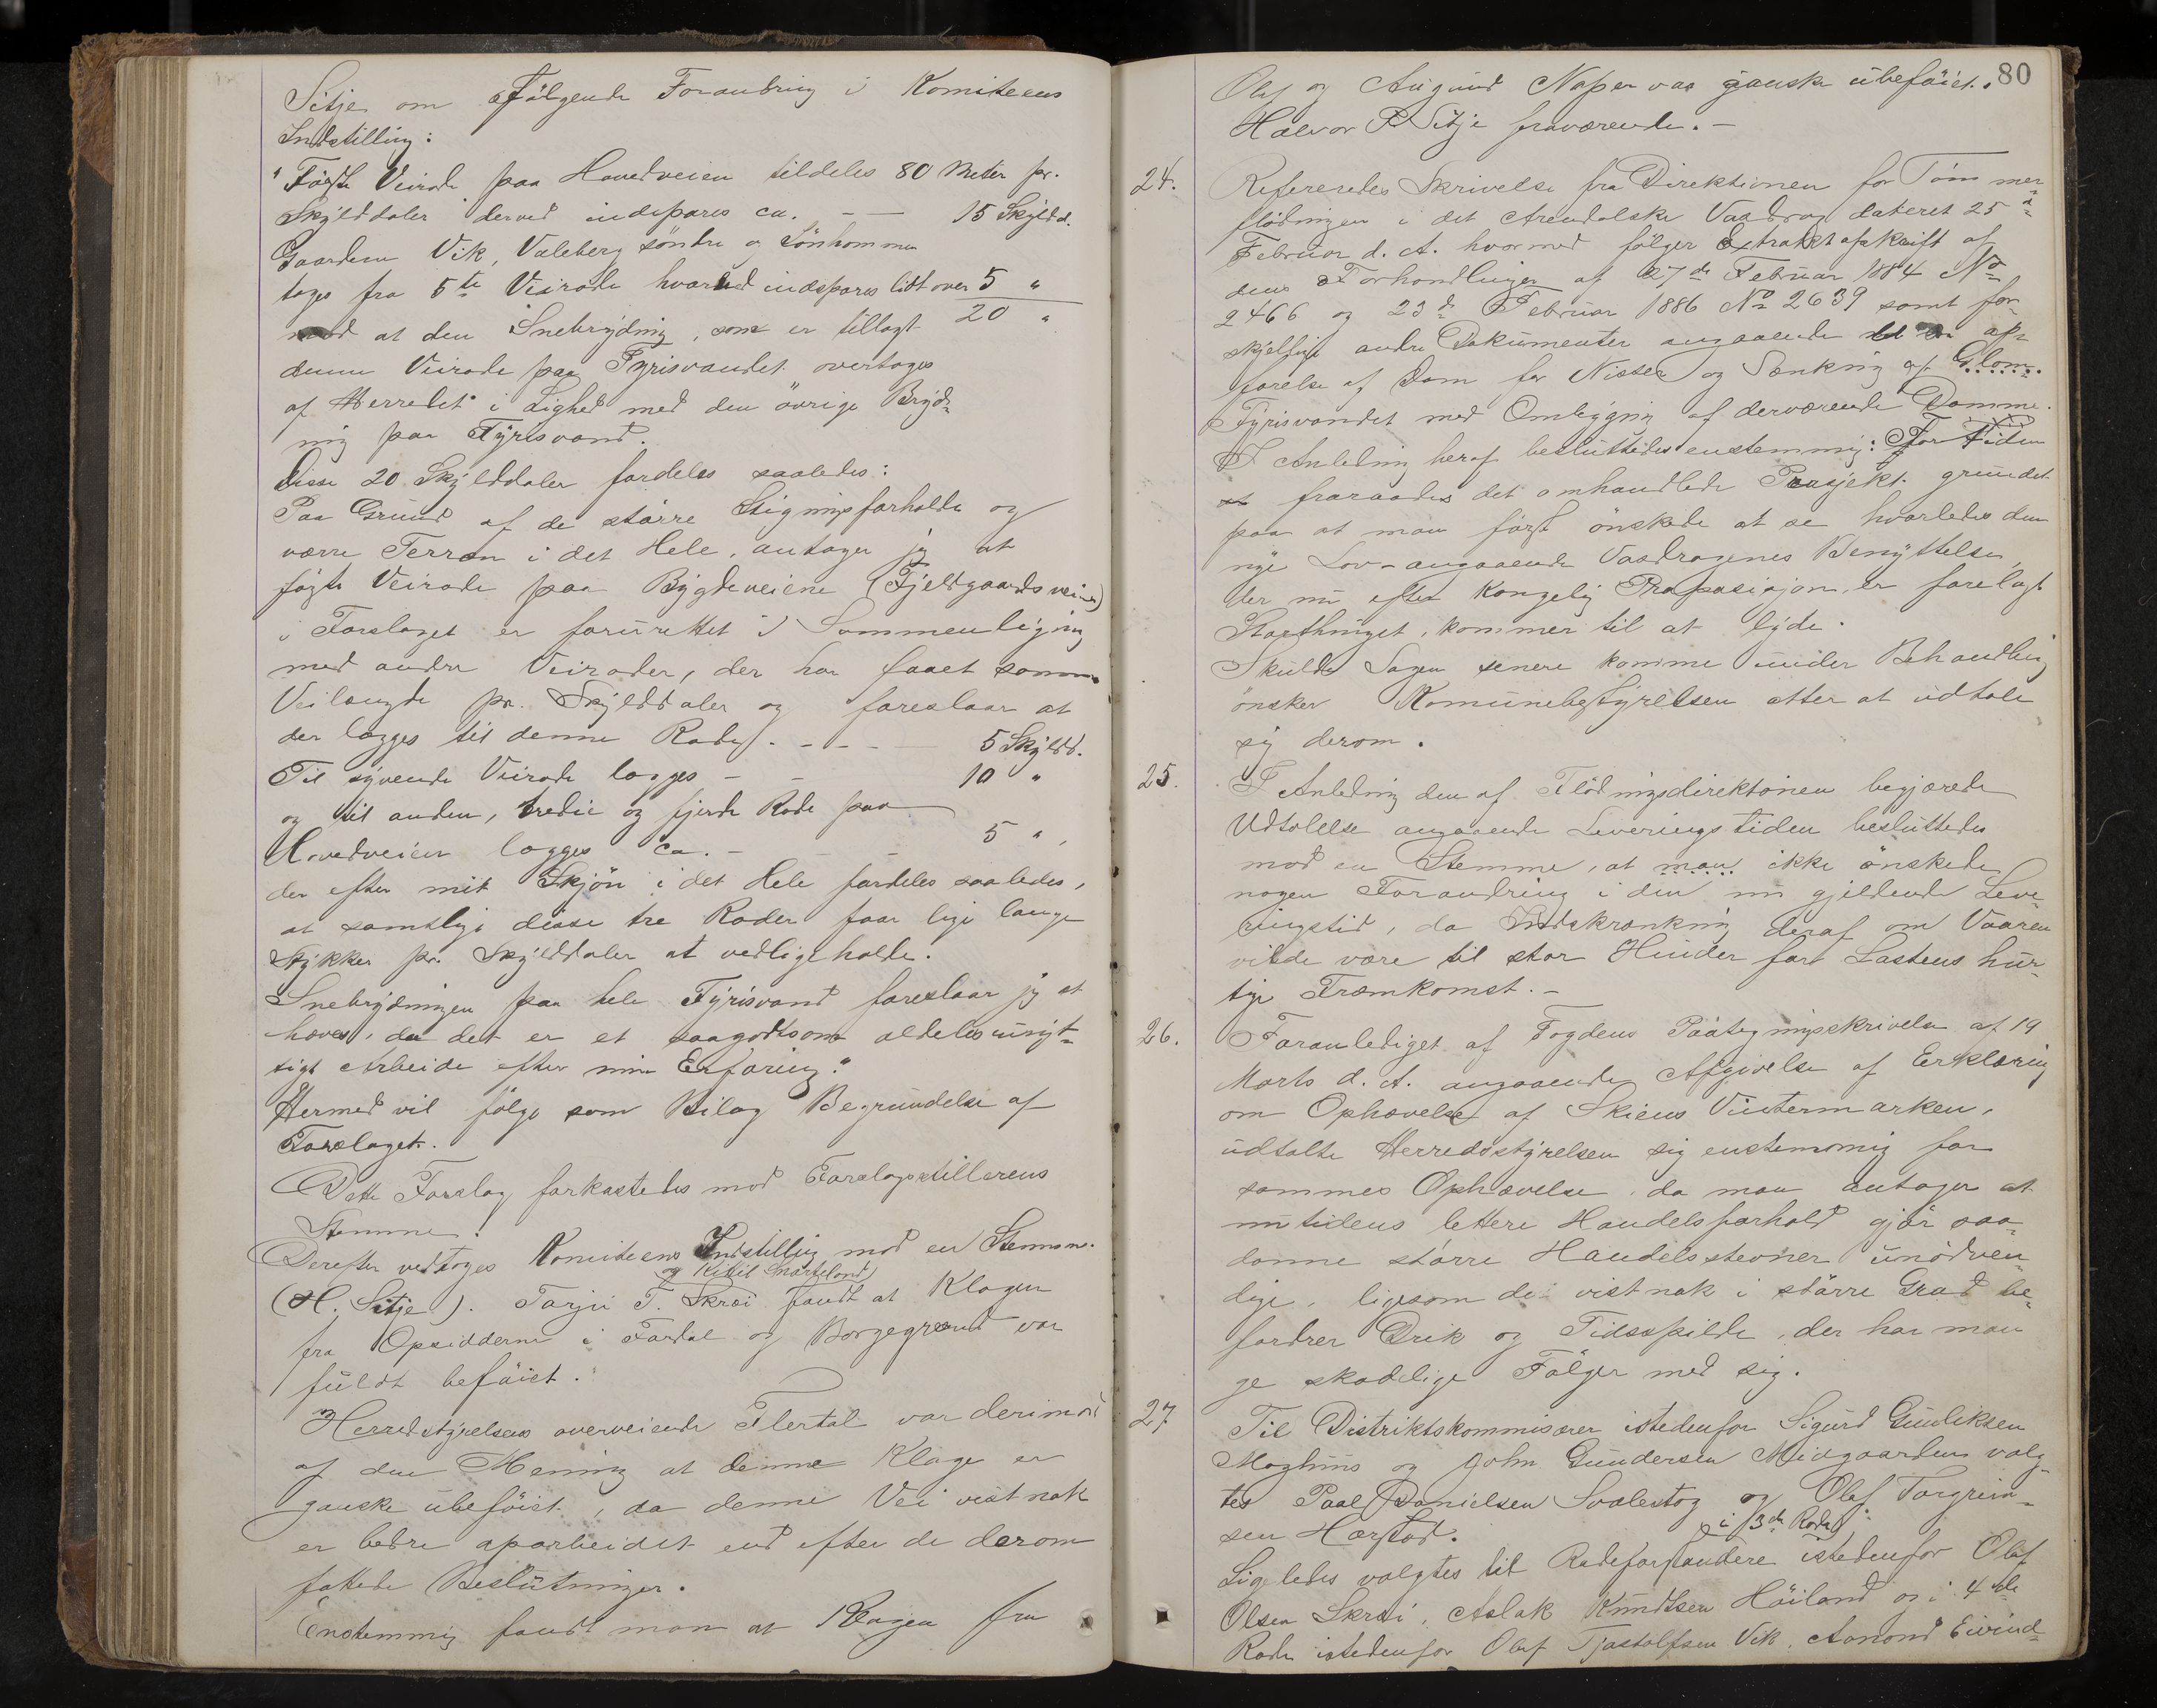 Sitje om følgende Forandring i Komiteens
Indstilling:
"Første Veirode paa Hovedveien tildeles 80 Meter pr.
Skylddaler derved indspares ca. - — 15 Skyldd.
Gaardene Vik, Valeberg søndre og
tages fra 5te Veirode hvorved indspares lidt over 5 "
mod at den Snebrydning, som er tillagt 20 "
denne Veirode paa Fyrisvandet overtages
af Herredet i Lighed med den øvrige Bryd-
ning paa Fyrisvand.
Disse 20 Skylddaler fordeles saaledes:
Paa Grund af de større Stigningsforholde og
værre Terræn i det Hele, antager jeg at
sjette Veirode paa Bygdeveiene (Fjeldgaardsveien)
i Forslaget er forurettet i Sammenligning
med andre Veiroder, der har faaet samme
Veilængde pr. Skylddaler og foreslaar at
der lægges til denne Rode. - - - — 5 Skyldd.
Til syvende Veirode lægges - - 10 "
og til anden, tredie og fjerde Rode paa
Hovedveien lægges ca. - - - 5 ",
der efter mit Skjøn i det Hele fordeles saaledes,
at samtlige disse tre Roder faar lige lange
Stykker pr. Skylddaler at vedligeholde.
Snebrydningen paa hele Fyrisvand foreslaar jeg at
hæves, da det er et saagodtsom aldeles unyt-
tigt Arbeide efter min Erfaring."
Hermed vil følge som Bilag Begrundelse af
Forslaget.
Dette Forslag forkastedes mod Forslagsstillerens
Stemme.
Derefter vedtoges Komiteens Indstilling mod en Stemme.
(H. Sitje). Tarju T. Skrei og Kittil fandt at Klagen
fra Opsidderne i Fardal og Borgegrænd var
fuldt beføiet.
Herredstyrelsens overveiende Flertal var derimod
af den Mening at denne Klage er
ganske ubeføiet, da denne Vei vistnok
er bedre oparbeidet end efter de derom
fattede Beslutninger.
Enstemmig fandt man at Klagen fra
80
Olaf og Augund Naper var ganske ubeføiet.
Halvor P. Sitje fraværende. -
24. Refereredes Skrivelse fra Direktionen for Tømmer-
flødningen i det Arendalske Vasdrag dateret 25de
Februar d. A. hvormed følger Extraktafskrift af
dens Forhandlinger af 27de Februar 1884 No
2466 og 23de Februar 1886 No 2639 samt for-
skjellige andre Dokumenter angaaende op-
førelse af Dam for Nisser og Sænkning af
Fyrisvandet med Ombygning af derværende Damme.
I Anledning heraf besluttedes enstemmig: For Tiden
fraraades det omhandlede Prosjekt grundet
paa at man først ønskede at se hvorledes den
nye Lov angaaende Vasdragenes Benyttelse,
der nu efter Kongelig Proposisjon er forelagt
Storthinget, kommer til at lyde.
Skulde Sagen senere komme under Behandling
ønsker Komunebestyrelsen atter at udtale
sig derom.
25. I Anledning den af Flødningsdirektionen begjærede
Udtalelse angaaende Leveringstiden besluttedes
mod en Stemme, at man ikke ønskede
nogen Forandring i den nu gjeldende Leve-
ringstid, da Indskrænkning deraf om Vaaren
vilde være til stor Hinder for Lastens hur-
tige Fremkomst. -
26. Foranlediget af Fogdens Paategningsskrivelse af 19
Marts d. A. angaaende Afgivelse af Erklæring
om Ophævelse af Skiens Vintermarken,
udtalte Herredsstyrelsen sig enstemmig for
sammes Ophævelse, da man antager at
nutidens lettere Handelsforhold gjør saa-
danne større Handelsstevner unødven-
dige, ligesom de vistnok i større Grad be-
fordrer Drik og Tidsspilde, der har man-
ge skadelige Følger med sig.
27 Til Distriktskommisærer istedenfor Sigurd Gunleksen
Moghus og John Gundersen Midgaarden valg-
tes Paal Danielsen Svalestog og Olaf Torgrim-
sen Harstad.
Ligeledes valgtes til Rodeforstandere i 3de Rode istedenfor Olaf
Olsen Skrei, Aslak Knudtsen Høiland og i 4de
Rode istedenfor Olaf Tjostolfsen Vik, Aanond Eivind-